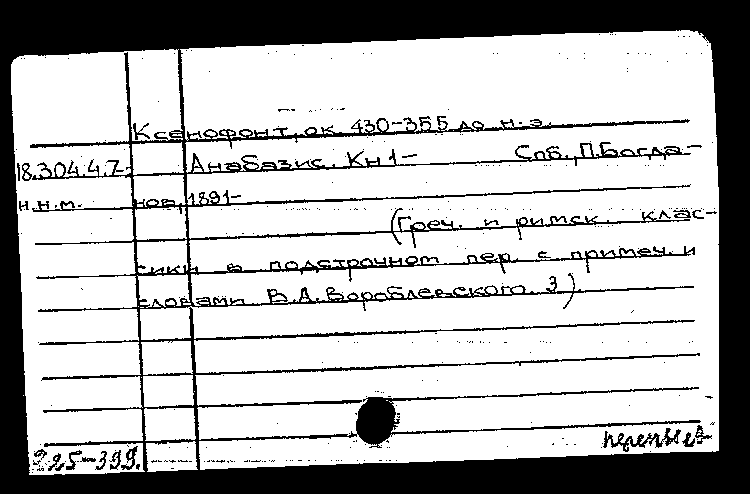 Ксенофонт, ок. 430-355 до н.э.
18.304.4.7-; Анабазис. Кн 1- Спб., П.Богда-
н.н.м. нов, 1891-
(Греч. и римск. клас-
сики в подстрочном пер. с примеч. и
словами В.А.Вораблевского. 3)
225-399.